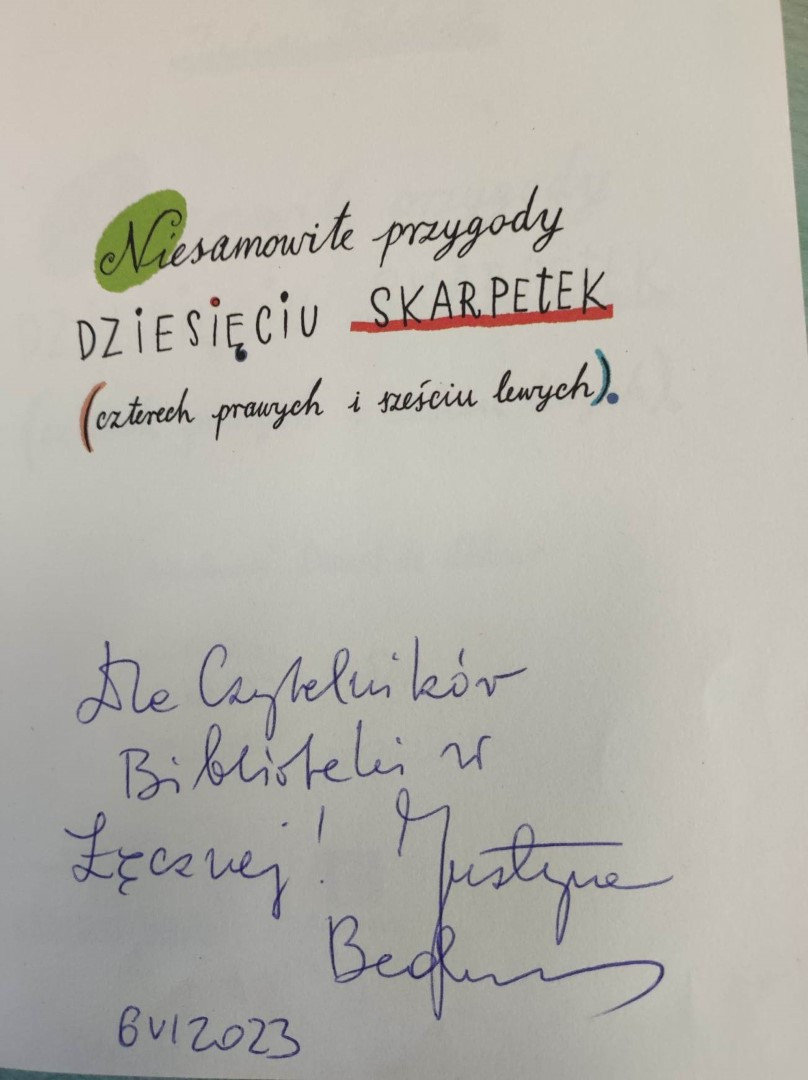 Niesamowite przygody
DZIESIĘCIU SKARPETEK
(czterech prawych i sześciu lewych).
Dla Czytelników
Biblioteki w
Łęcznej! Justyna
Bednarek
6 VI 2023